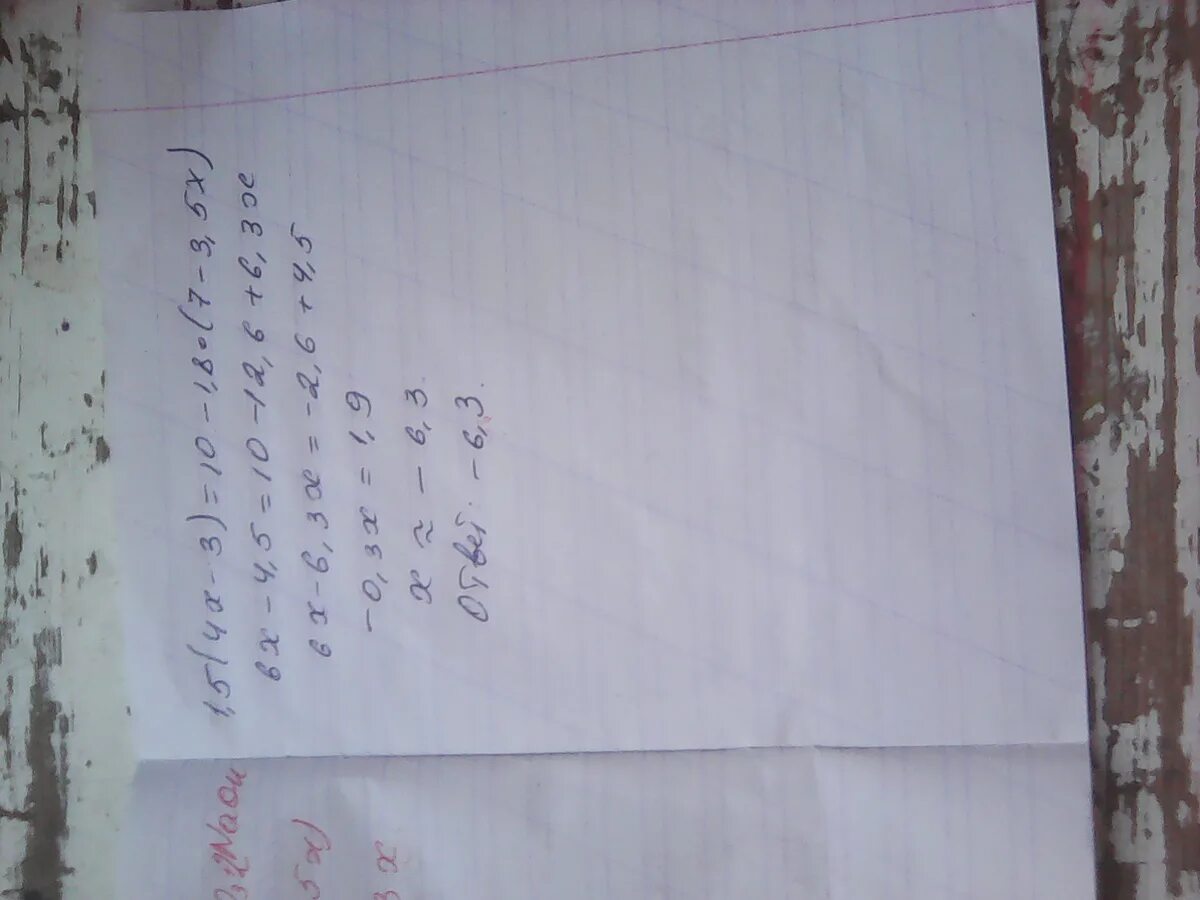 1,5(4x-3)=10-1,8•(7-3,5x)
6x-4,5=10-12,6+6,3x
6x-6,3x=-2,6+4,5
-0,3x=1,9
x≈-6,3.
Ответ: -6,3.
5x)
3x